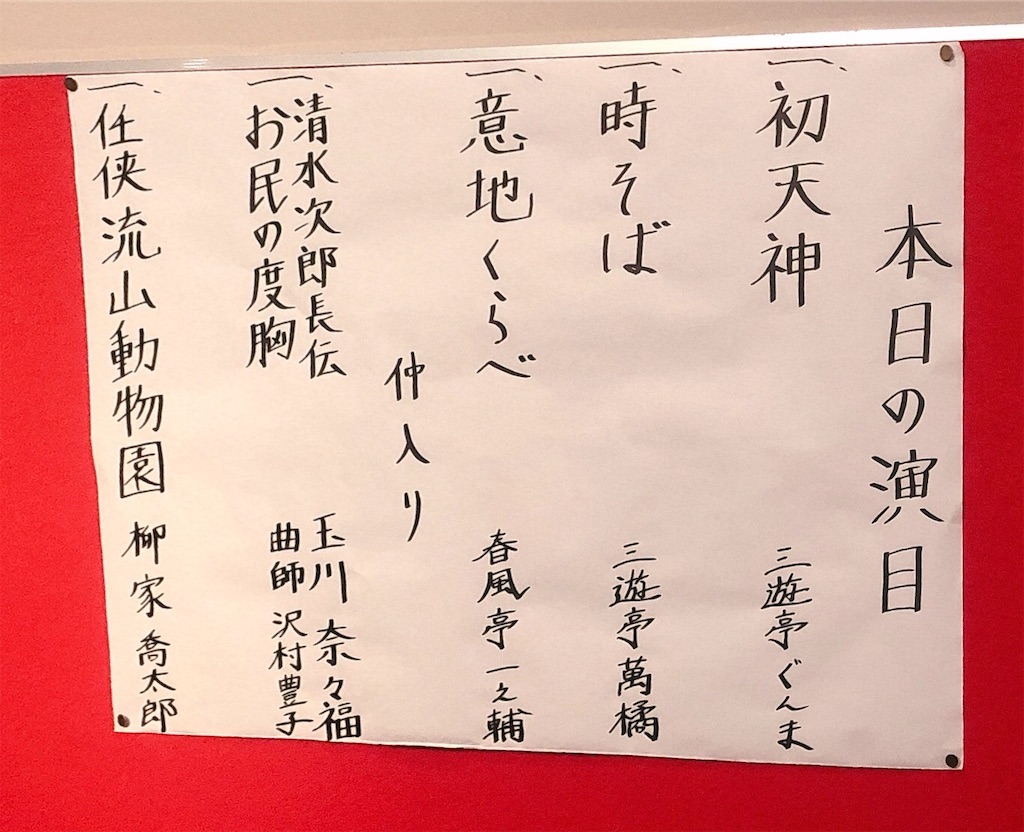 本日の演目
一、初天神 三遊亭ぐんま
一、時そば 三遊亭萬橘
一、意地くらべ 春風亭一之輔
仲入り
一、清水次郎長伝 玉川奈々福
お民の度胸 曲師 沢村豊子
一、任侠流山動物園 柳家喬太郎